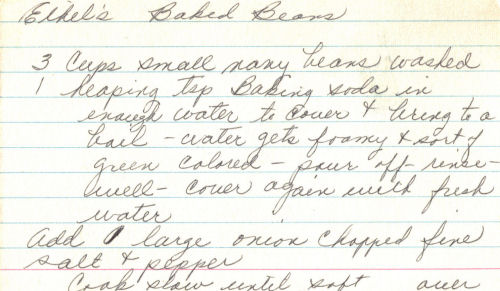 Ethel's Baked Beans
3 Cups small navy beans washed
1 heaping tsp Baking soda in
enough water to cover & bring to a
boil - water gets foamy & sort of
green colored - pour off - rinse -
well - cover again with fresh
water
Add 1 large onion chopped fine
salt & pepper
Cook slow until soft over